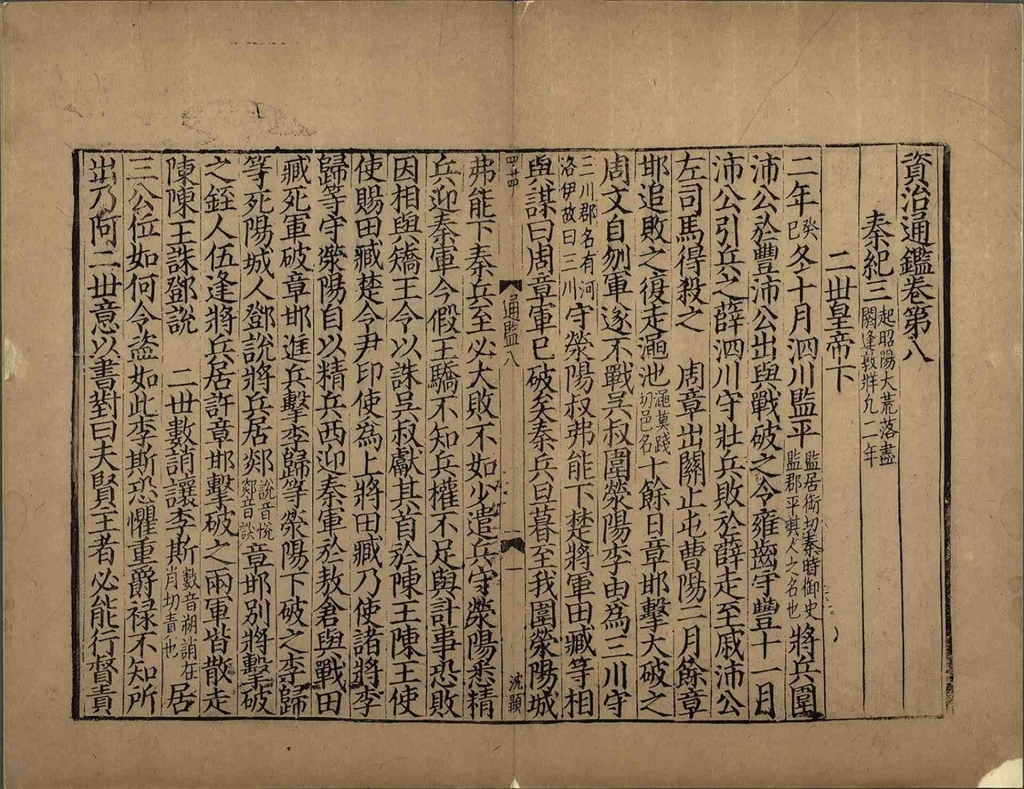 資治通鑑卷第八
秦紀三起昭陽大荒落盡閼逢敦牂凡二年
二世皇帝下
二年癸巳冬十月泗川監平監居銜切秦時御史監郡平其人之名也將兵圍
沛公於豐沛公出與戰破之令雍齒守豐十一月
沛公引兵之薛泗川守壯兵敗於薛走至戚沛公
左司馬得殺之 周章出關止屯曹陽二月餘章
邯追敗之復走澠池澠莫踐切邑名十餘日章邯擊大破之
周文自刎軍遂不戰吳叔圍滎陽李由為三川守
三川郡名有河洛伊故曰三川守滎陽叔弗能下楚將軍田臧等相
與謀曰周章軍已破矣秦兵旦暮至我圍滎陽城
四廿四 通監八 一 沈顯
弗能下秦兵至必大敗不如少遣兵守滎陽悉精
兵迎秦軍今假王驕不知兵權不足與計事恐敗
因相與矯王令以誅吳叔獻其首於陳王陳王使
使賜田臧楚令尹印使為上將田臧乃使諸將李
歸等守滎陽自以精兵西迎秦軍於敖倉與戰田
臧死軍破章邯進兵擊李歸等滎陽下破之李歸
等死陽城人鄧說將兵居郯說音悅郯音談章邯別將擊破
之銍人伍逢將兵居許章邯擊破之兩軍皆散走
陳陳王誅鄧說 二世數誚讓李斯數音朔誚在肖切責也居
三公位如何令盜如此李斯恐懼重爵祿不知所
出乃阿二世意以書對曰夫賢主者必能行督責